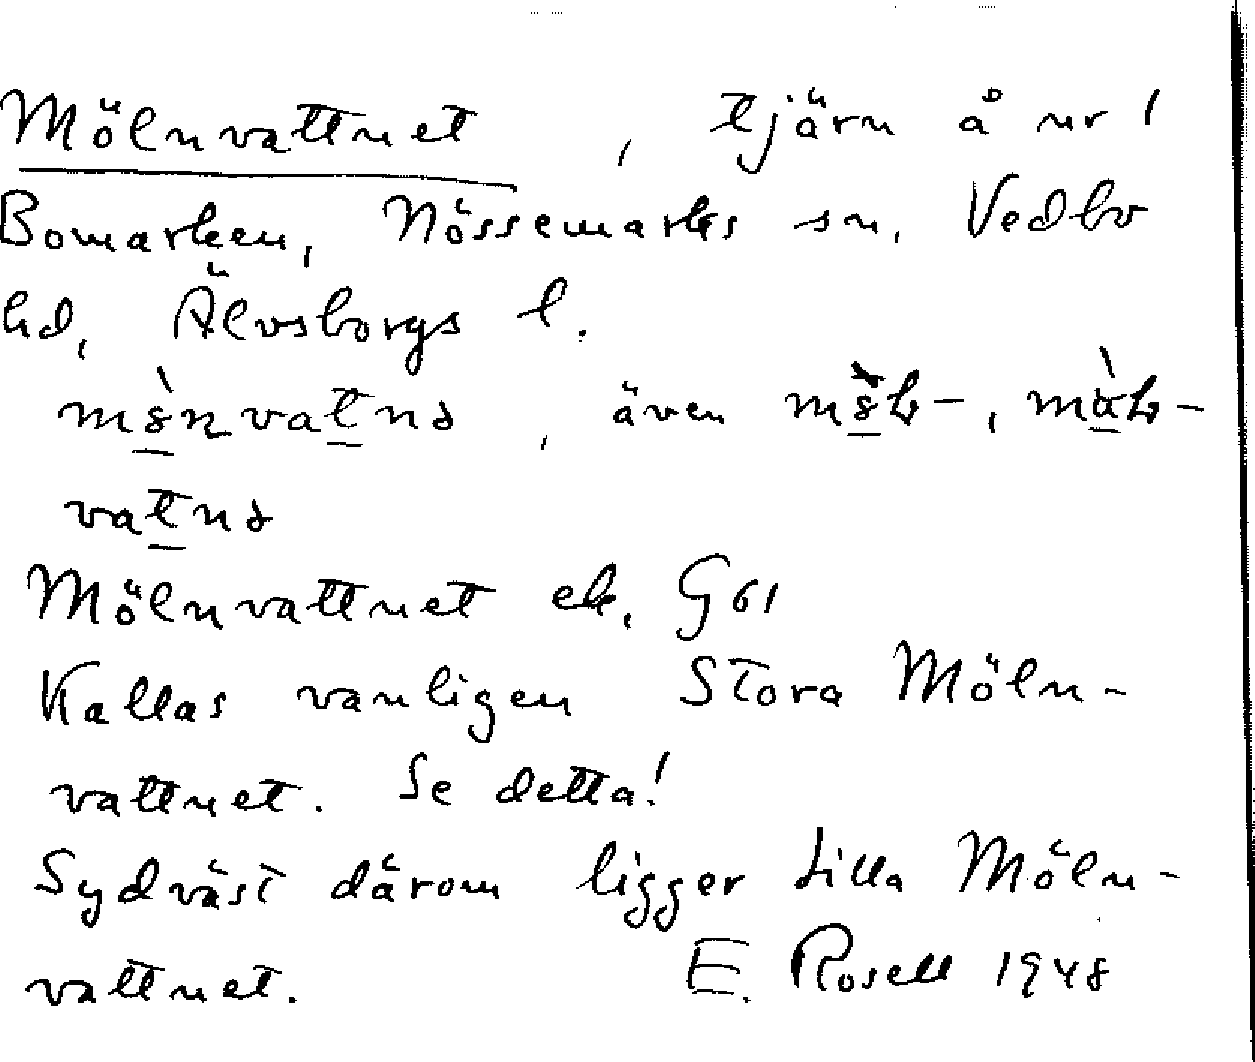 Mölnvattnet, tjärn å nr 1
Bomarken, Nössemarks sn, Vedbo
hd, Älvsborgs l.
även
Mölnvattnet ek. G 61
Kallas vanligen Stora Möln-
vattnet. Se detta!
Sydväst därom ligger Lilla Möln-
vattnet. E. Rosell 1948